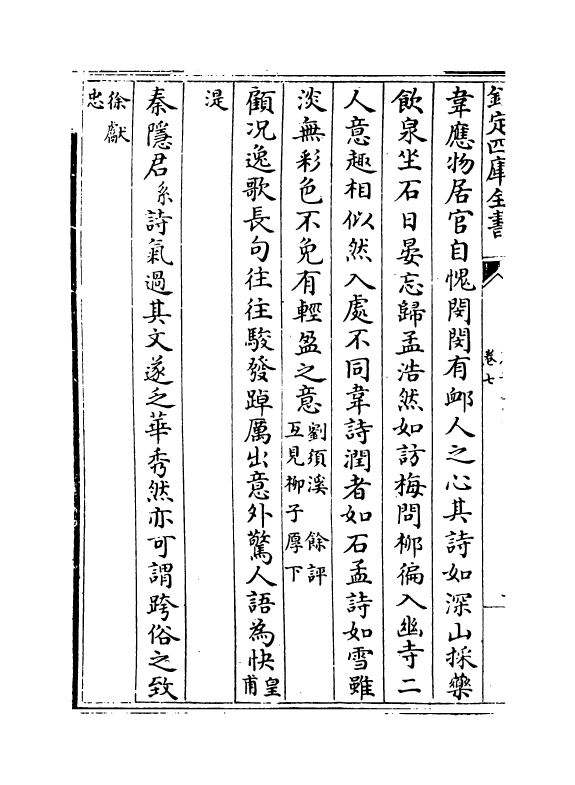 欽定四庫全書
卷七
韋應物居官自愧閔閔有䘏人之心其詩如深山採藥
飲泉坐石日晏忘歸孟浩然如訪梅問柳徧入幽寺二
人意趣相似然入處不同韋詩潤者如石孟詩如雪雖
淡無彩色不免有輕盈之意劉須溪 餘評互見柳子厚下
顧况逸歌長句往往駿發踔厲出意外驚人語為快皇甫
湜
秦隱君系詩氣過其文遂乏華秀然亦可謂跨俗之致
徐獻忠